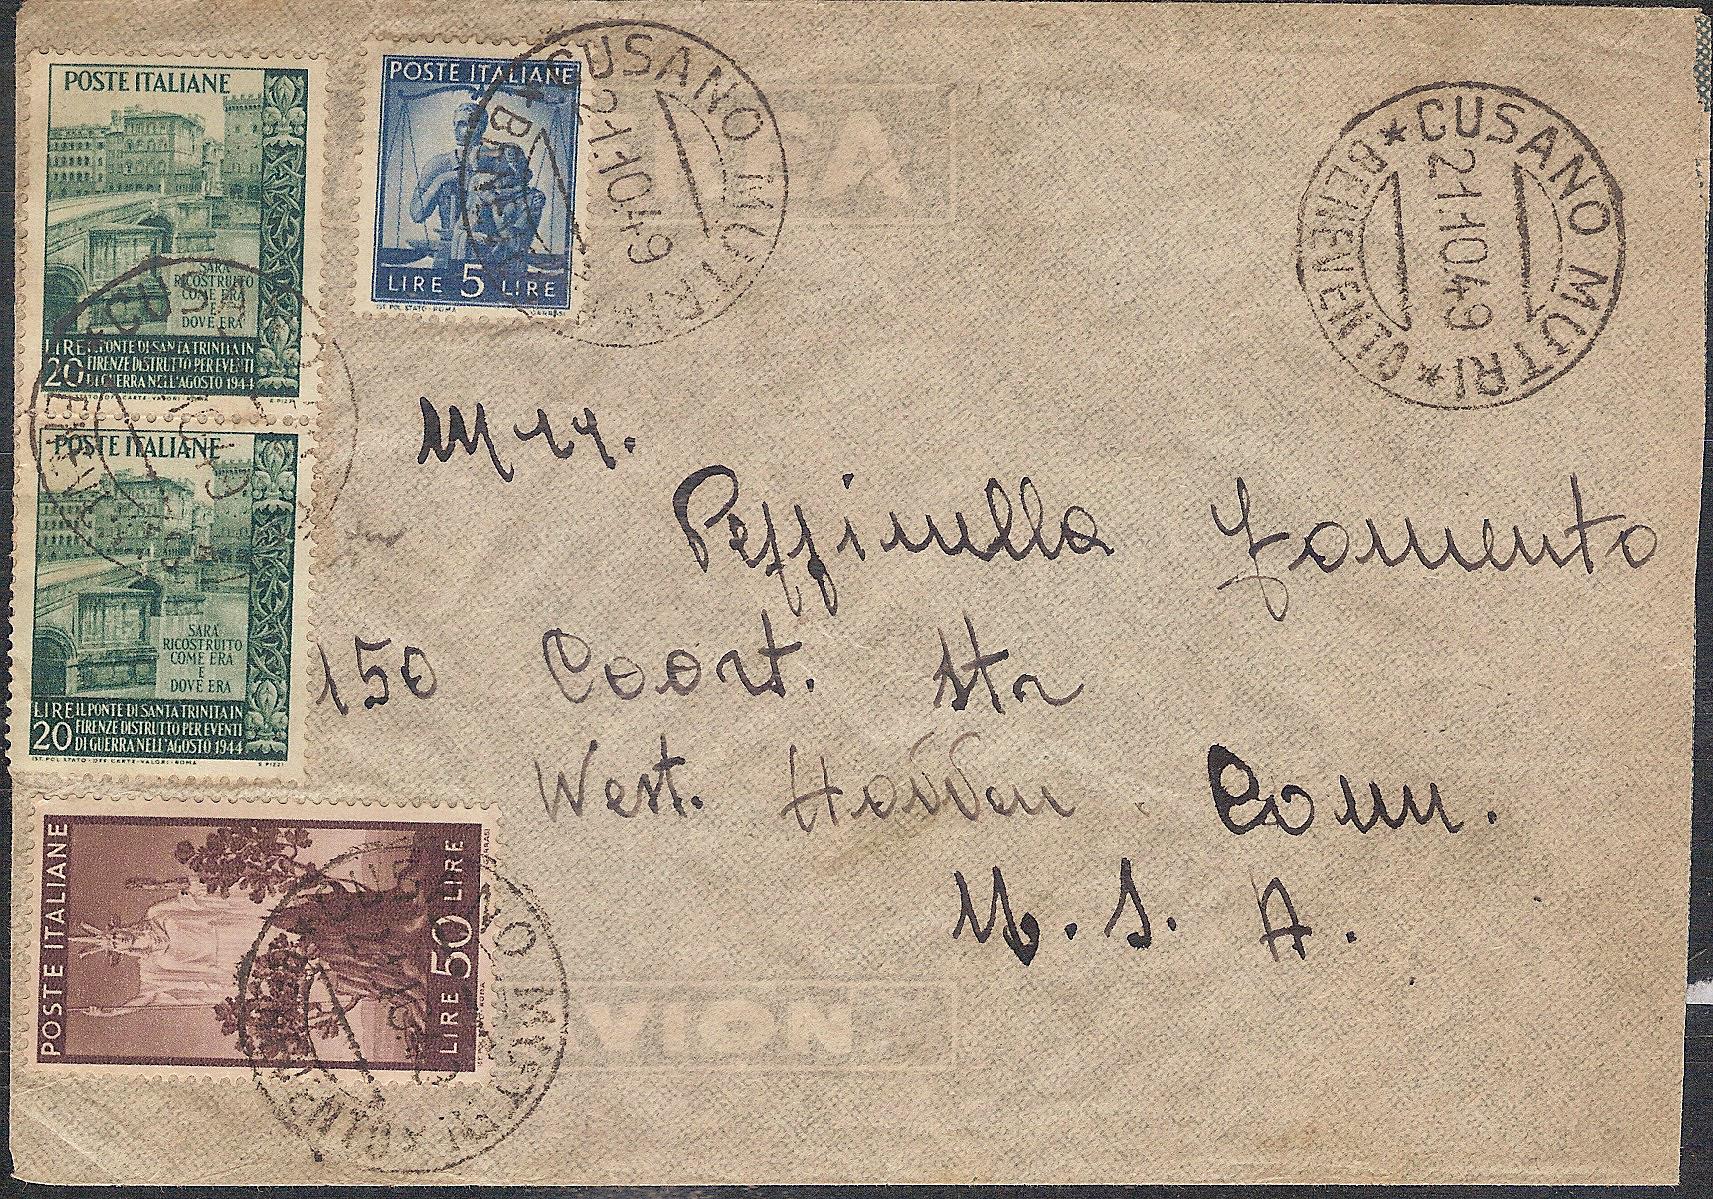 POSTE ITALIANE
SARA
RICOSTRUITO
COME ERA
E
DOVE ERA
LIRE IL PONTE DI SANTA TRINITA IN
20 FIRENZE DISTRUTTO PER EVENTI
DI GUERRA NELL'AGOSTO 1944
POSTE ITALIANE
LIRE 5 LIRE
IST. POL. STATO - ROMA
CUSANO MUTRI
21.10.49
CUSANO MUTRI
BENEVENTO
21.10.49
POSTE ITALIANE
SARA
RICOSTRUITO
COME ERA
E
DOVE ERA
LIRE IL PONTE DI SANTA TRINITA IN
20 FIRENZE DISTRUTTO PER EVENTI
DI GUERRA NELL'AGOSTO 1944
IST. POL. STATO - OFF. CARTE-VALORI - ROMA
E. PIZZI
Mrs.
150 Coort. Str
West. Hovven Conn.
U. S. A.
POSTE ITALIANE
LIRE 50 LIRE
VION